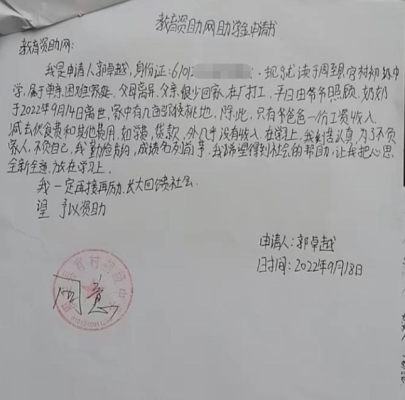 教育资助网助学金申请书
教育资助网:
我是申请人郭卓越,身份证:61012 现就读于周至 官村初级中
学,属于单亲困难家庭,父母离异,父亲很少回家,在厂打工,平日由爷爷照顾,奶奶
于2022年9月14日离世,家中有几亩猕猴桃地,除此,只有爸爸一份工资收入
减去伙食费和其他费用,如学费,贷款,外几乎没有收入,在学习上,我刻苦认真,为了不负
家人,不负自己,我勤俭克己,成绩名列前茅,我希望得到社会的帮助,让我把心思
全部全意放在学习上。
我一定再接再励,长大回馈社会
望 予以资助
申请人:郭卓越
日时间:2022年9月18日
同意